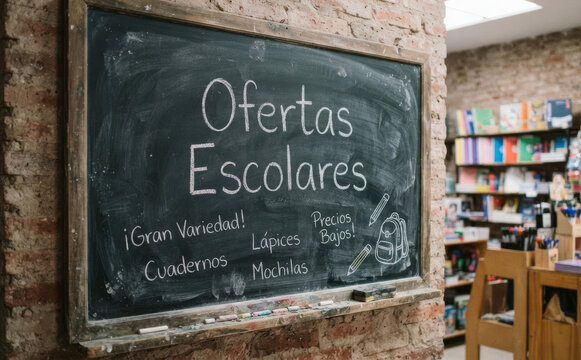 Ofertas
Escolares
¡Gran Variedad!
Lápices
Precios
Bajos!
Cuadernos
Mochilas